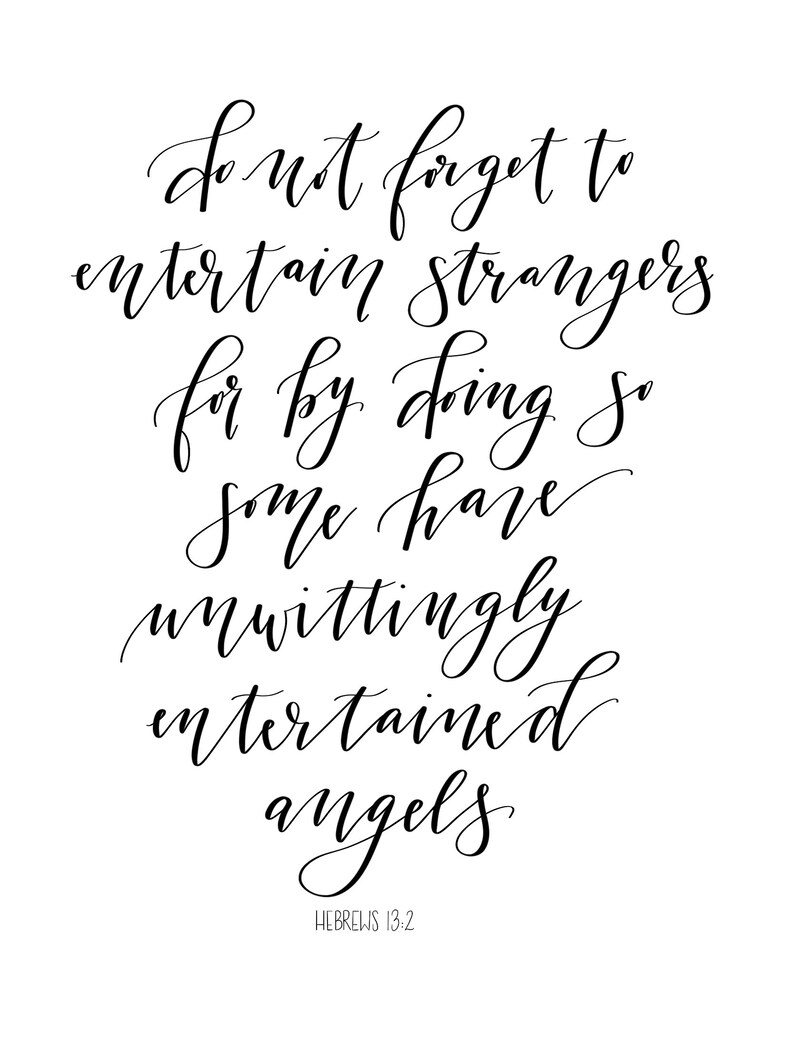 do not forget to
entertain strangers
for by doing so
some have
unwittingly
entertained
angels
HEBREWS 13:2